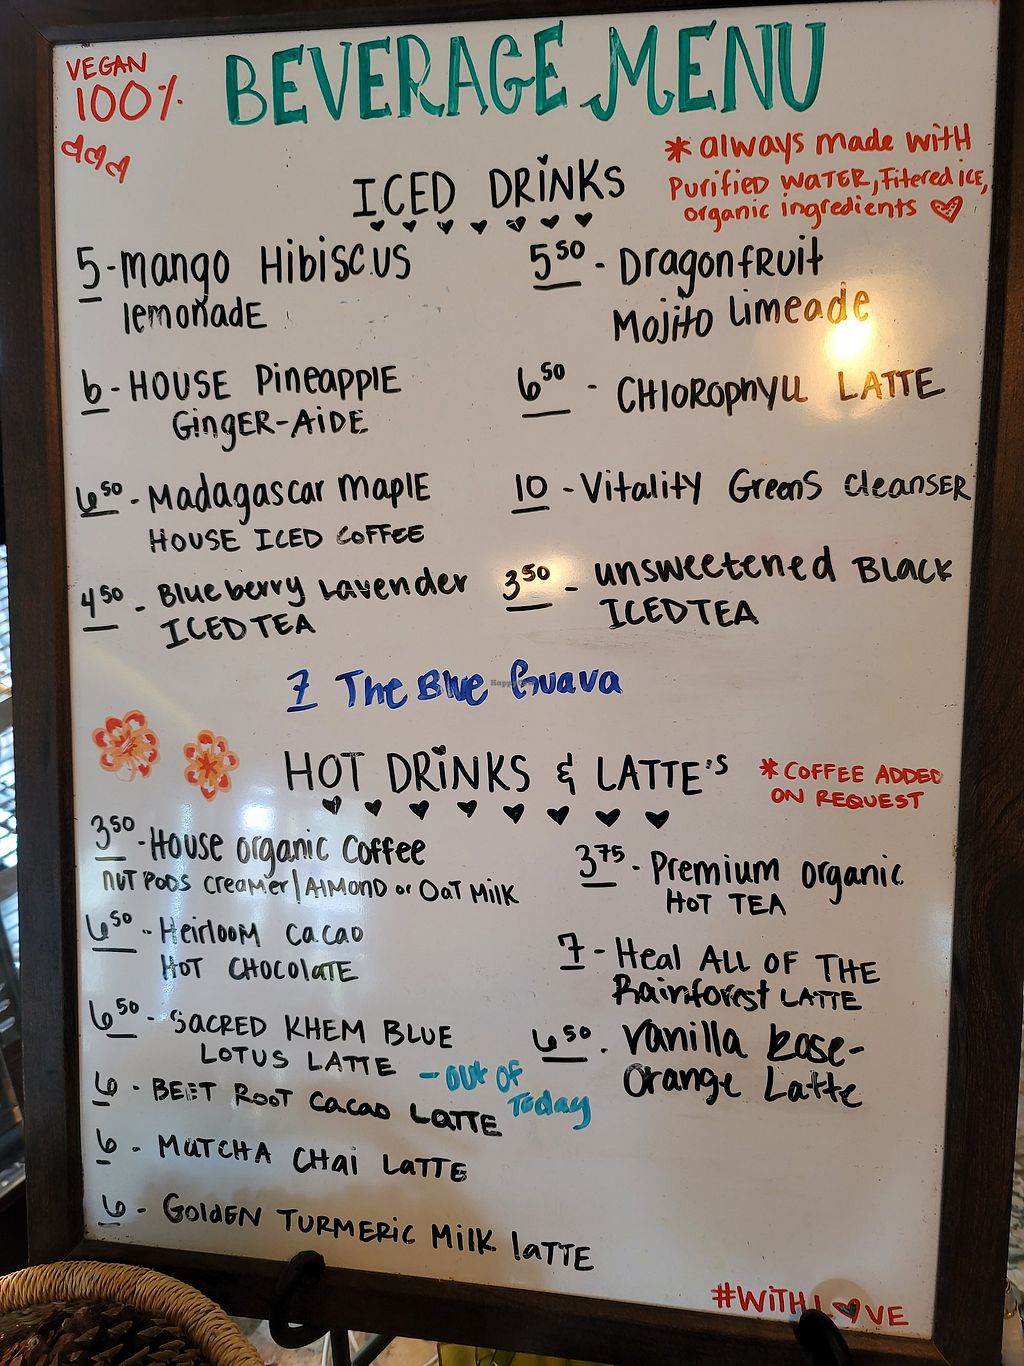 VEGAN
100%
BEVERAGE MENU
* always made with
Purified WATER, Fitered ice,
organic ingredients
ICED DRINKS
5 - mango Hibiscus
lemonadE
6 - HOUSE PineapplE
GingER-AiDE
6 50 - Madagascar maplE
HOUSE ICED COFFEE
4 50 - Blueberry Lavender
ICED TEA
5 50 - Dragonfruit
Mojito Limeade
6 50 - CHloRophyll LATTE
10 - Vitality Greens cleansER
3 50 - unsweetened BLACK
ICED TEA
7 The Blue Guava
HOT DRINKS & LATTE'S
* COFFEE ADDED
ON REQUEST
3 50 - House organic Coffee
NUT PODS creaMer / AlMOND or OaT Milk
6 50 - HeirlooM cacao
HOT CHOCOlaTE
6 50 - SACRED KHEM BLUE
LOTUS LATTE - OUT OF
Today
6 - BEET ROOT Cacao LaTTE
6 - MaTCHA CHai LaTTE
6 - GoldEN TURMERiC Milk laTTE
3 75 - Premium organic
HOT TEA
7 - Heal ALL OF THE
Rainforest LATTE
6 50 - Vanilla Rose-
Orange Latte
#WiTH LOVE